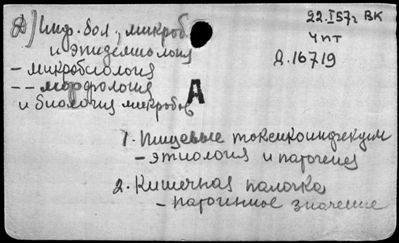 22.I 57г ВК
8) Инф. бол., микроб.
и эпидемиология
4 пт
Д.16719
- микробиология
-- морфология
и биология микробов
А
1. Пищевые токсикоинфекции
- этиология и патогенез
2. Кишечная палочка
- патогенное значение